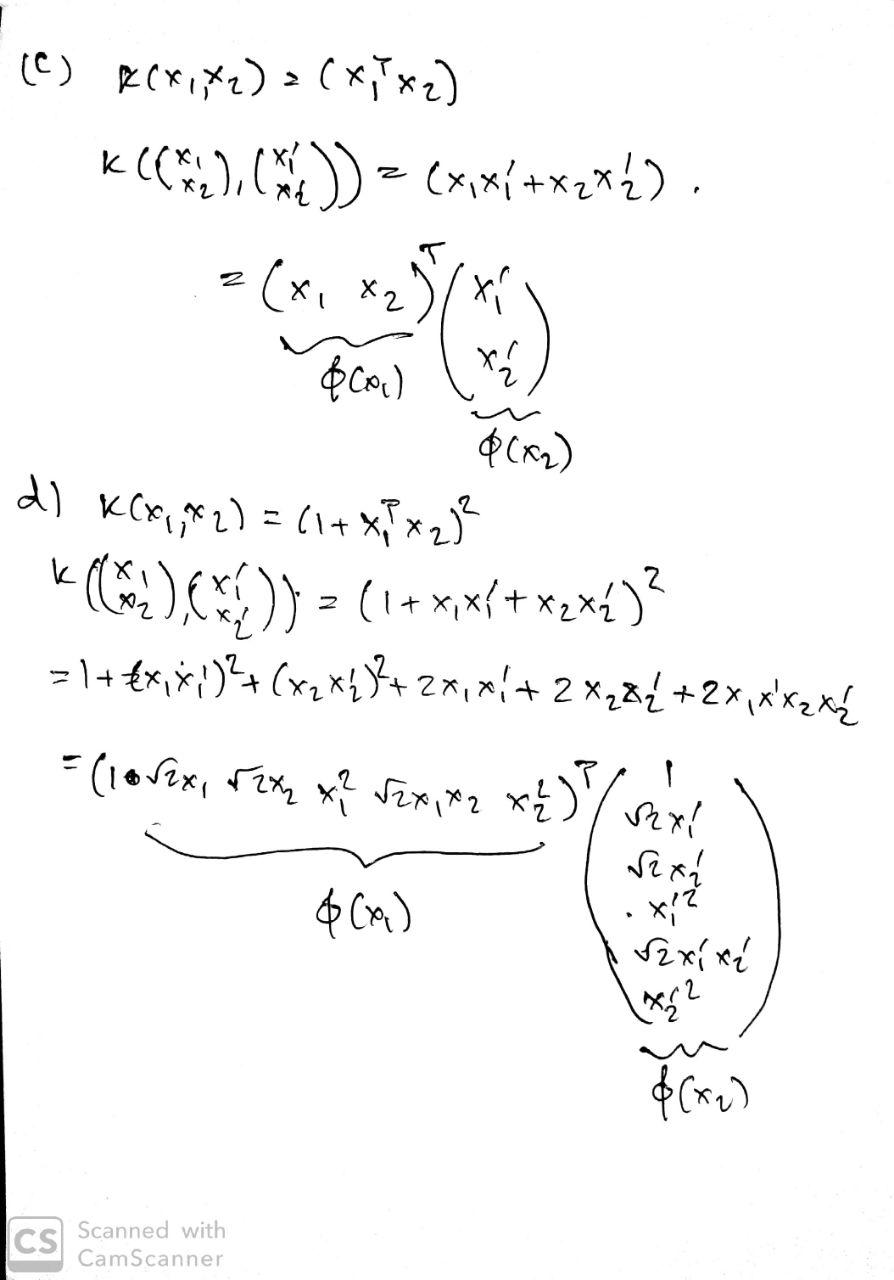 (c) k(x₁,x₂) = (x₁ᵀx₂)
k((x₁ x₂),(x₁′ x₂′)) = (x₁x₁′+x₂x₂′).
= (x₁ x₂)ᵀ(x₁′ x₂′)
ϕ(x₁)
ϕ(x₂)
d) k(x₁,x₂) = (1+x₁ᵀx₂)²
k((x₁ x₂),(x₁′ x₂′)) = (1+x₁x₁′+x₂x₂′)²
=1+(x₁x₁′)²+(x₂x₂′)²+2x₁x₁′+2x₂x₂′+2x₁x′x₂x₂′
=(1 √2x₁ √2x₂ x₁² √2x₁x₂ x₂²)ᵀ
1
√2x₁′
√2x₂′
x₁′²
√2x₁′x₂′
x₂′²
ϕ(x₁)
ϕ(x₂)
CS Scanned with
CamScanner